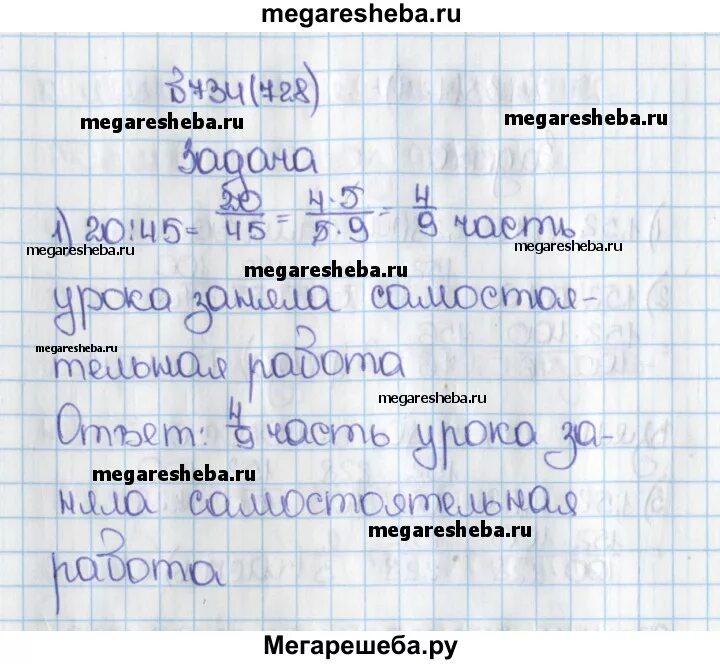 megaresheba.ru
В734(728)
megaresheba.ru
megaresheba.ru
Задача
1) 20:45= 20/45 = 4·5/5·9 = 4/9 часть
megaresheba.ru
megaresheba.ru
megaresheba.ru
урока заняла самостоя-
megaresheba.ru
тельная работа
megaresheba.ru
Ответ: 4/9 часть урока за-
megaresheba.ru
няла самостоятельная
megaresheba.ru
работа
Мегарешеба.ру